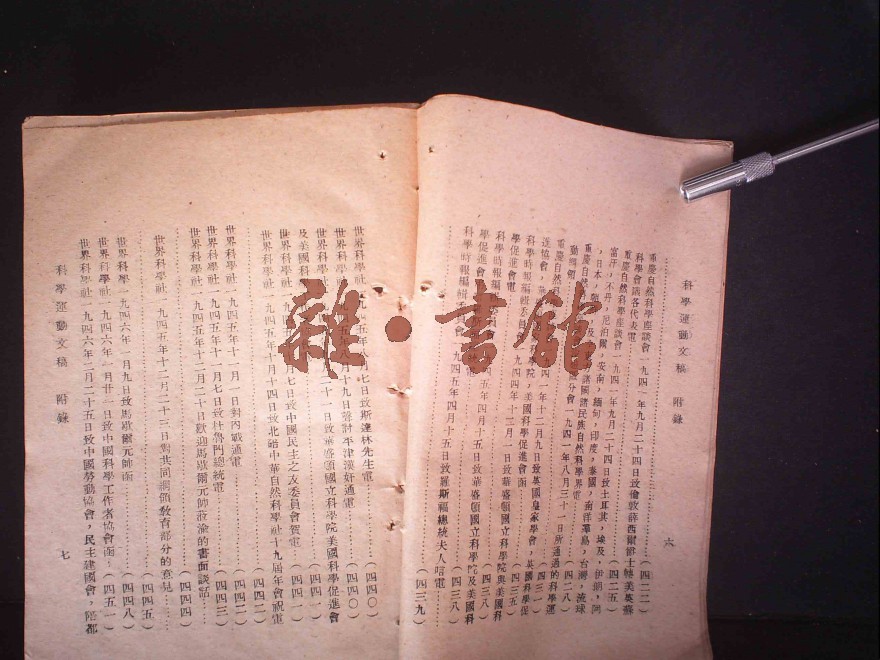 科學運動文稿 附錄
六
重慶自然科學座談會一九四一年九月二十四日致倫敦薛西爾爵士轉美英蘇
科學會議各代表電(四二二)
重慶自然科學座談會一九四一年九月二十四日致土耳其,埃及,伊朗,阿
富汗,不丹,尼泊爾,安南,緬甸,印度,泰國,南洋羣島,台灣,琉球
,日本,諸國諸民族自然科學界電(四二五)
重慶自然科分會一九四一年八月三十一日所通過的科學運
動綱領(四二八)
進協會,十二月九日致英國皇家學會,英國科學促
科學時報編輯委員學院,美國科學促進會函(四三一)
學促進會電一九四四年十二月一日致華盛頓國立科學院與美國科
科學時報編(四三五)
學促進會年四月十五日致華盛頓國立科學院及美國科
(四三八)
科學時報編輯委員會一九四五年四月十五日致羅斯福總統夫人唁電
(四三八)
(四三九)
世界科學社一九四五年八月七日致斯達林先生電(四四〇)
世界科學社年九月十九日聲討平津漢奸通電(四四〇)
世界科學二十一日致華盛頓國立科學院美國科學促進會
及美國科月七日致中國民主之友委員會賀電(四四一)
世界科學社一九四五年十月十四日致北碚中華自然科學社十九屆年會祝電
(四四二)
世界科學社一九四五年十一月一日對內戰通電(四四二)
世界科學社一九四五年十一月七日致杜魯門總統電(四四三)
世界科學社一九四五年十二月二十日歡迎馬歇爾元帥蒞渝的書面談話
(四四四)
世界科學社一九四五年十二月二十三日對共同綱領教育部分的意見
(四四五)
世界科學一九四六年一月九日致馬歇爾元帥函(四四八)
世界科學社一九四六年一月廿一日致中國科學工作者協會函(四五一)
世界科學社一九四六年二月二十五日致中國勞動協會,民主建國會,陪都
科學運動文稿 附錄
七
雜·書館